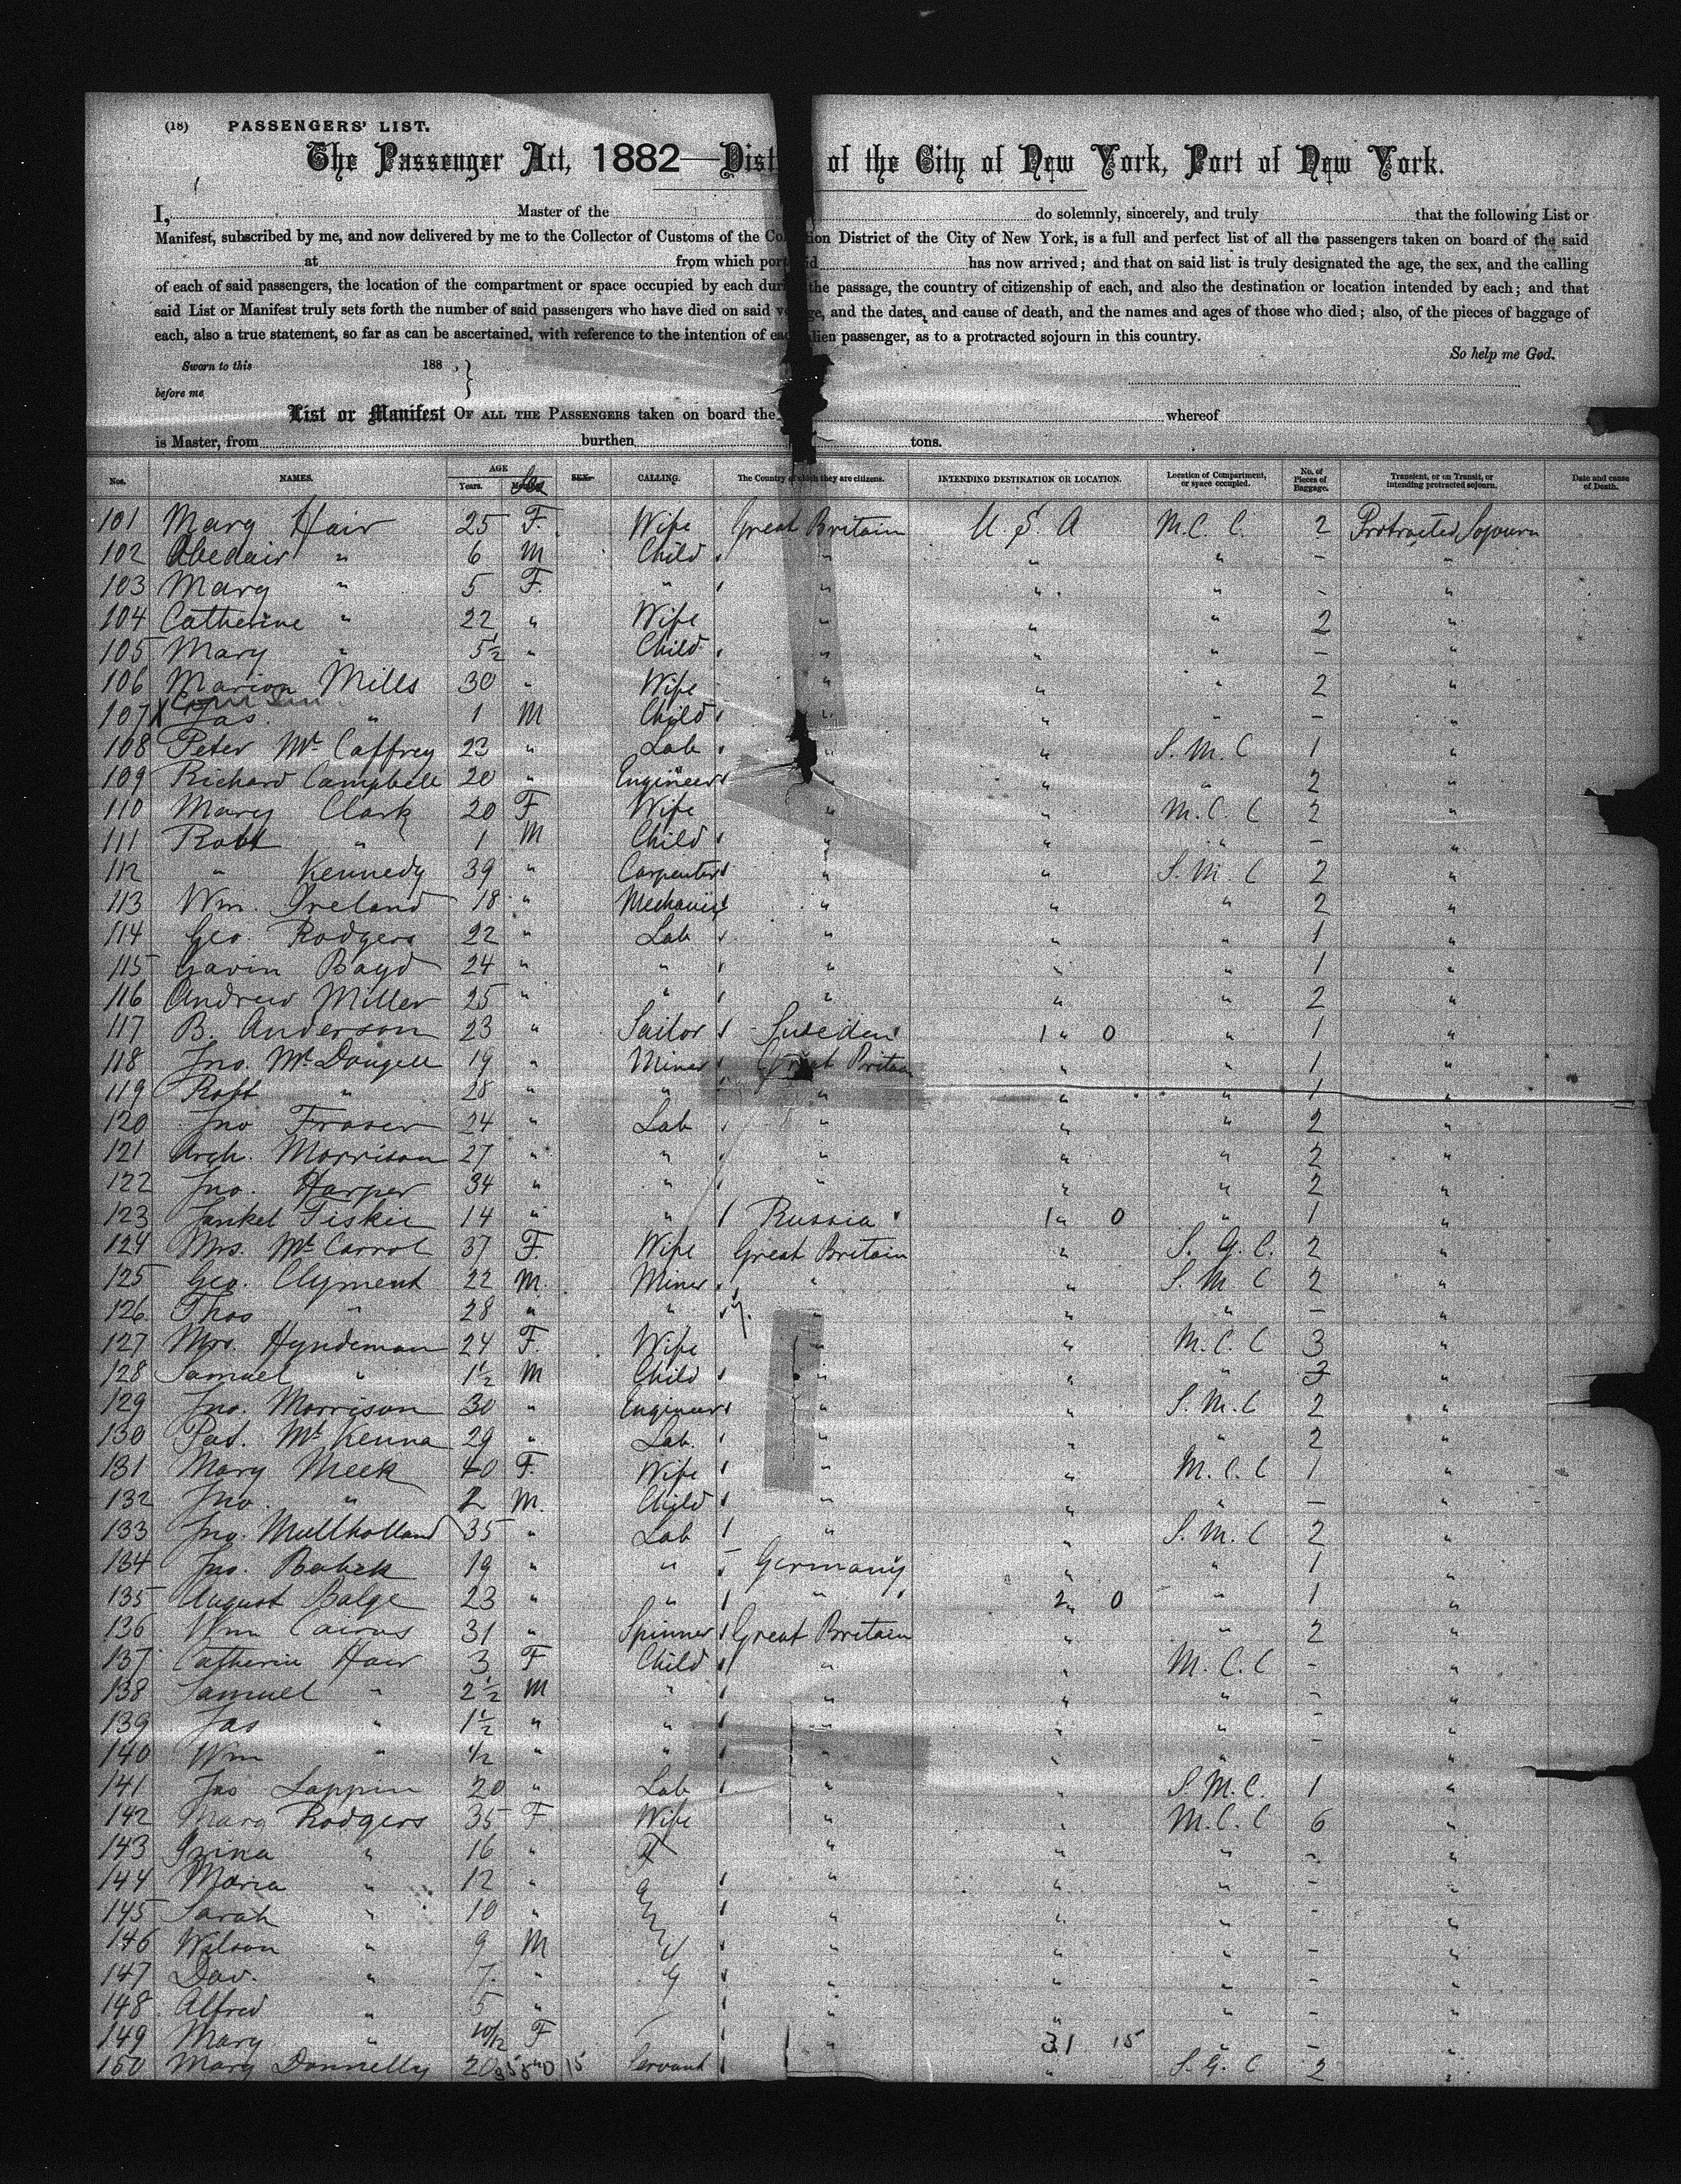 (18) PASSENGERS' LIST.
The Passenger Act, 1882—Dist of the City of New York, Port of New York.
I, Master of the do solemnly, sincerely, and truly that the following List or
Manifest, subscribed by me, and now delivered by me to the Collector of Customs of the Co tion District of the City of New York, is a full and perfect list of all the passengers taken on board of the said
at from which port id has now arrived; and that on said list is truly designated the age, the sex, and the calling
of each of said passengers, the location of the compartment or space occupied by each duri the passage, the country of citizenship of each, and also the destination or location intended by each; and that
said List or Manifest truly sets forth the number of said passengers who have died on said vo ge, and the dates, and cause of death, and the names and ages of those who died; also, of the pieces of baggage of
each, also a true statement, so far as can be ascertained, with reference to the intention of eac alien passenger, as to a protracted sojourn in this country.
So help me God.
Sworn to this 188 , }
before me
List or Manifest OF ALL THE PASSENGERS taken on board the whereof
is Master, from burthen tons.
Nos. NAMES. AGE Years. Months. Sex SEX. CALLING. The Country of which they are citizens. INTENDING DESTINATION OR LOCATION. Location of Compartment, or space occupied. No. of Pieces of Baggage. Transient, or on Transit, or intending protracted sojourn. Date and cause of Death.
101 Mary Hair 25 F. Wife Great Britain U. S. A M.C. C. 2 Protracted Sojourn
102 " 6 M Child " " " - "
103 Mary " 5 F. " " " " - "
104 Catherine " 22 " Wife " " " 2 "
105 Mary " 5½ " Child " " " - "
106 Marion Mills 30 " Wife " " " 2 "
107 Jas. " 1 M Child " " " - "
108 Peter McCaffrey 23 " Lab " " S. M. C 1 "
109 Richard Campbell 20 " Engineer " " " 2 "
110 Mary Clark 20 F Wife " " M. C. C 2 "
111 Robt " 1 M Child " " " - "
112 " Kennedy 39 " Carpenter " " S. M. C 2 "
113 Wm. Ireland 18 " Mechanic " " " 2 "
114 Geo. Rodgers 22 " Lab " " " 1 "
115 Gavin Boyd 24 " " " " " 1 "
116 Andrew Miller 25 " " " " " 2 "
117 B. Anderson 23 " Sailor Sweden 1 " 0 " 1 "
118 Jno. McDougall 19 " Miner Great Britain " " 1 "
119 Robt " 28 " " " " " 1 "
120 Jno Fraser 24 " Lab " " " 2 "
121 Arch. Morrison 27 " " " " " 2 "
122 Jno. Harper 34 " " " " " 2 "
123 Jankel Fiskie 14 " " Russia 1 " 0 " 1 "
124 Mrs. McCarrol 37 F. Wife Great Britain " S. G. C. 2 "
125 Geo. Clyment 22 M. Miner " " S. M C 2 "
126 Thos " 28 " " " " " - "
127 Mrs. Hyndeman 24 F. Wife " " M. C. C 3 "
128 Samuel " 1½ M Child " " " 3 "
129 Jno. Morrison 30 " Engineer " " S. M. C 2 "
130 Pat. McKenna 29 " Lab. " " " 2 "
131 Mary Meek 40 F. Wife " " M. C. C 1 "
132 Jno. " 2 M. Child " " " - "
133 Jno. Mullholland 35 " Lab " " S. M. C 2 "
134 Jno. Babek 19 " " Germany " " 1 "
135 August Balge 23 " " " 2 " 0 " 1 "
136 Wm Cairns 31 " Spinner Great Britain " " 2 "
137 Catherin Hair 3 F Child " " M. C. C - "
138 Samuel " 2½ M " " " " - "
139 Jas " 1½ " " " " " - "
140 Wm " ½ " " " " " - "
141 Jas Lappin 20 " Lab " " S. M. C. 1 "
142 Mary Rodgers 35 F. Wife " " M. C. C 6 "
143 " 16 " F " " " - "
144 Maria " 12 " " " " - "
145 Sarah " 10 " " " " - "
146 Wilson " 9 M " " " - "
147 Dav. " 7 " " " " - "
148 Alfred " 5 " " " " - "
149 Mary " 10/12 F " 31 15 " - "
150 Mary Donnelly 20 15 Servant " S. G. C 2 "